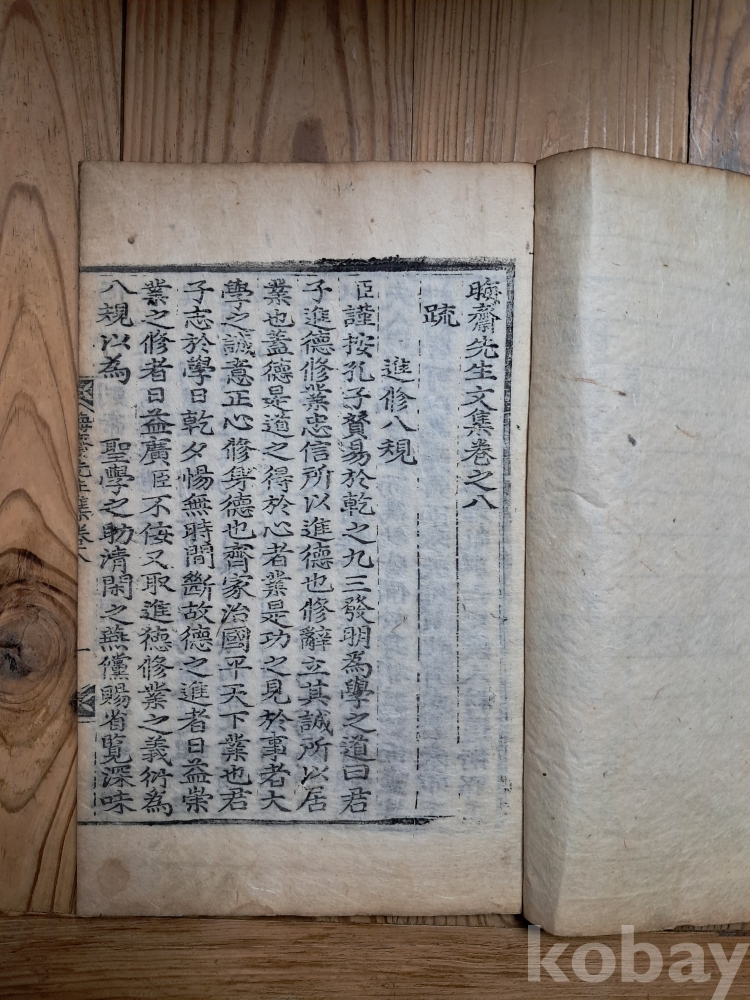 晦齋先生文集卷之八
疏
進修八規
臣謹按孔子贊易於乾之九三發明爲學之道曰君
子進德修業忠信所以進德也修辭立其誠所以居
業也蓋德是道之得於心者業是功之見於事者大
學之誠意正心修身德也齊家治國平天下業也君
子志於學日乾夕惕無時間斷故德之進者日益崇
業之修者日益廣臣不佞又取進德修業之義衍為
八規以為 聖學之助清閑之燕儻賜省覽深味
晦齋先生集卷八
一
kobay